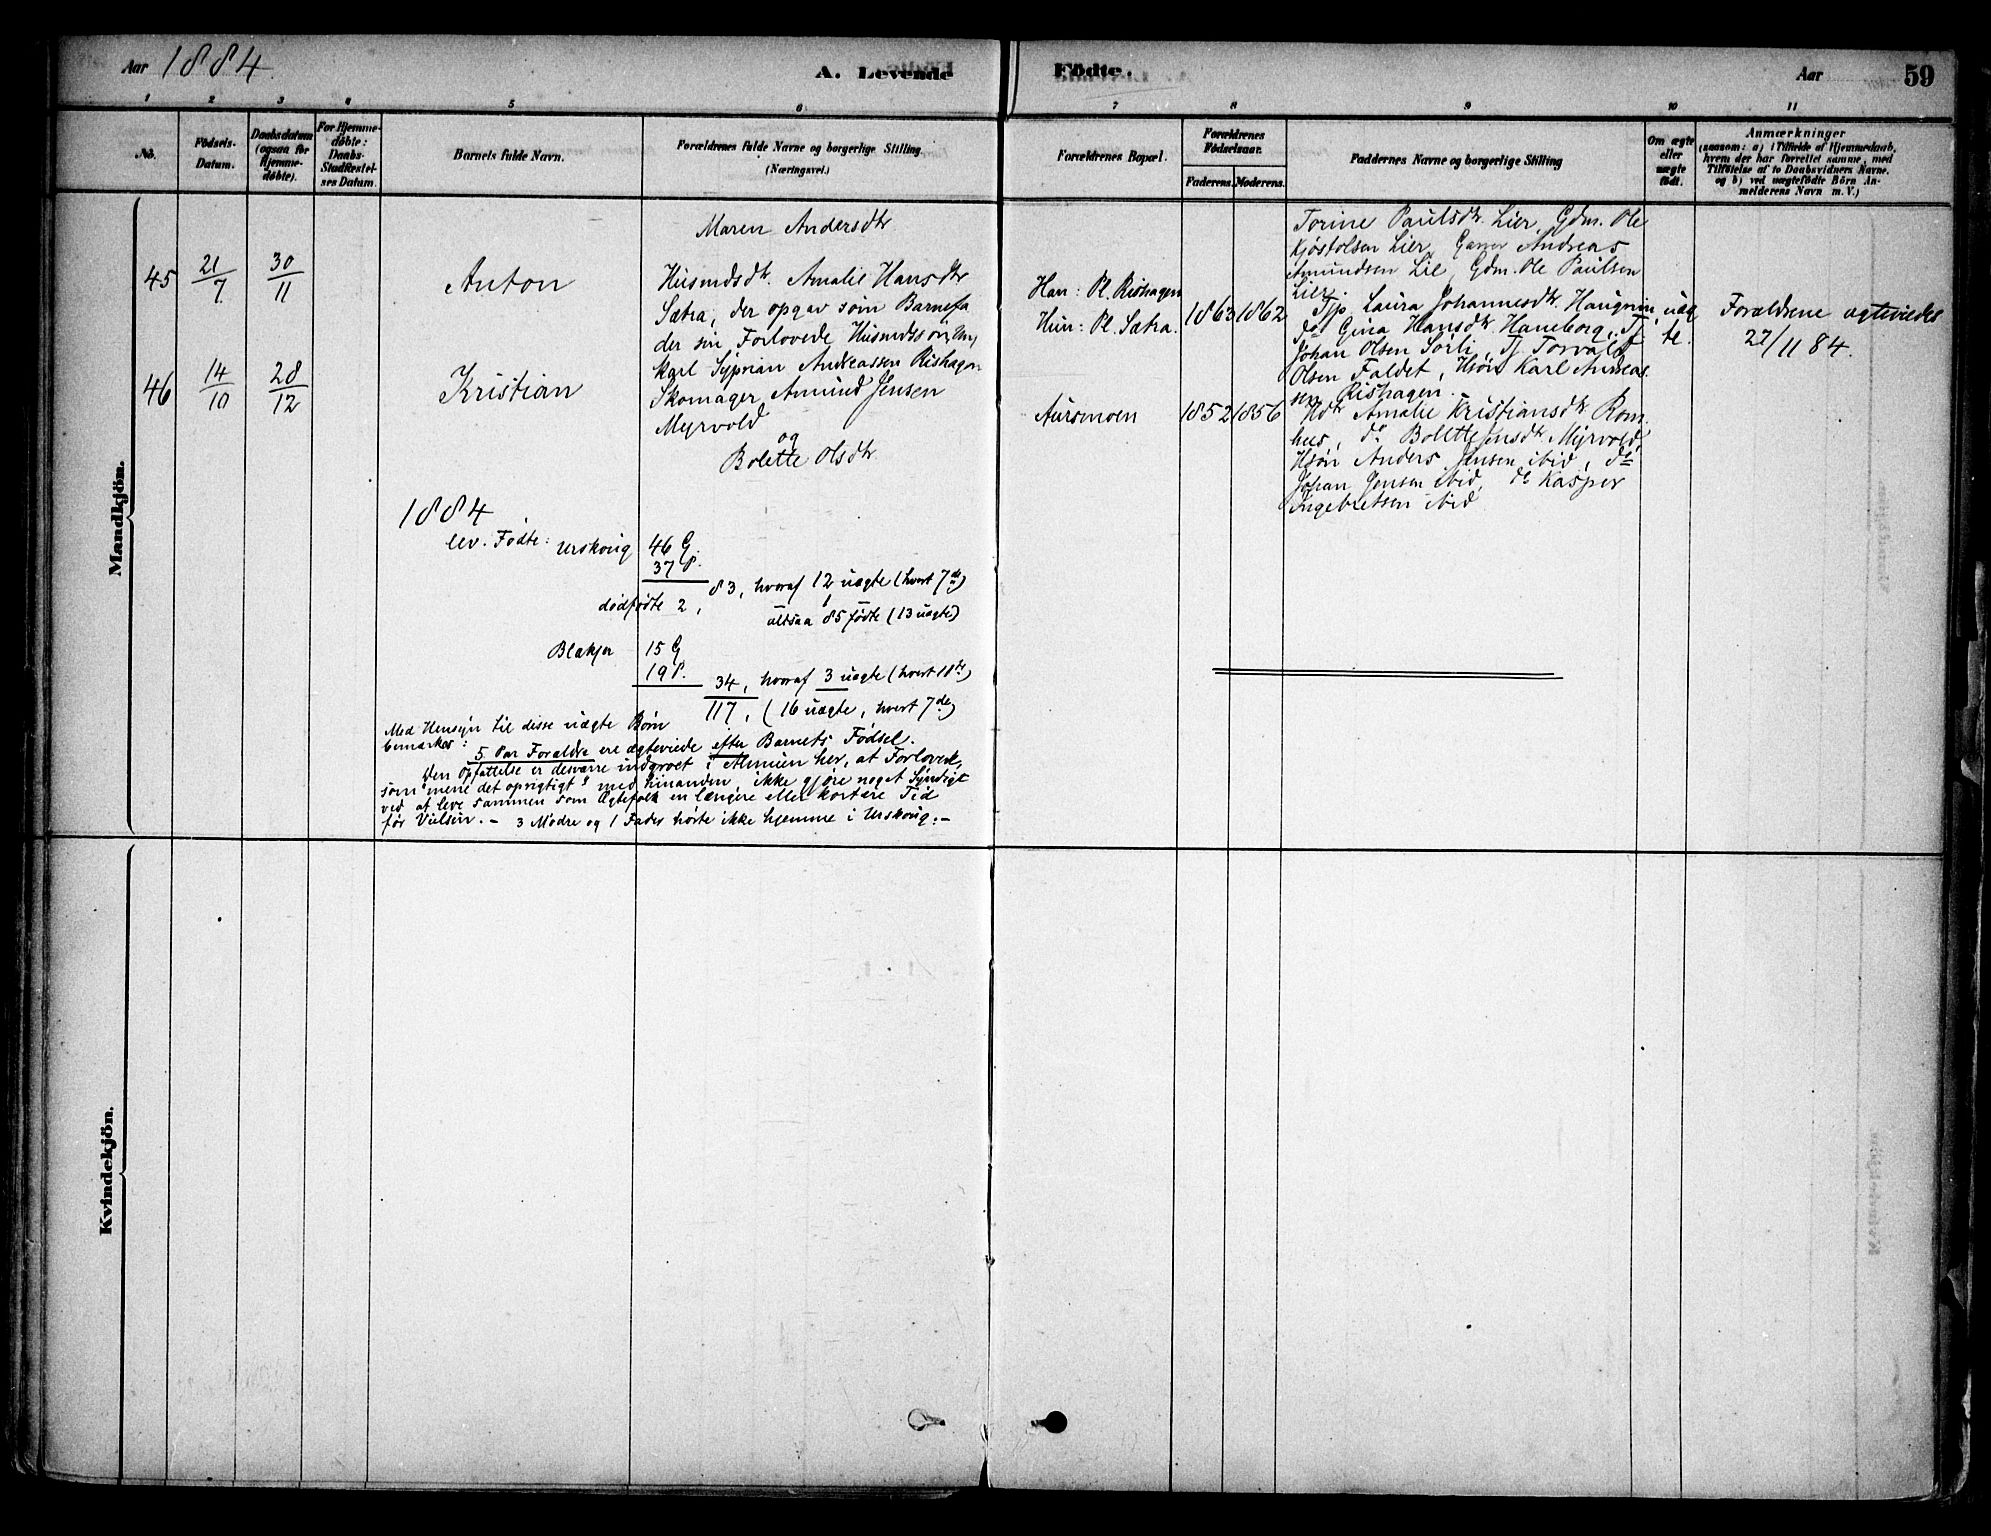 Aar 1884.
A. Levende
Födte.
Aar
59
1 2 3 4 5 6
7 8 9 10 11
No.
Födsels-
Datum.
Daabsdatum
(ogsaa for
Hjemme-
döbte).
For Hjemme-
döbte:
Daabs-
Stadfæstel-
ses Datum.
Barnets fulde Navn.
Forældrenes fulde Navne og borgerlige Stilling
(Næringsvei.)
Forældrenes Bopæl.
Forældrenes
Födselsaar.
Faderens. Moderens.
Faddernes Navne og borgerlige Stilling
Om ægte
eller
uægte
födt.
Anmærkninger
(saasom: a) i Tilfælde af Hjemmedaab,
hvem der har forrettet samme, med
Tilföielse af to Daabsvidners Navne,
og b) ved uægtefödte Börn An-
melderens Navn m. V.)
Mandkjön.
Maren Andersdtr
Torine Paulsdtr. Lier, Gdm. Ole
Kjøstolsen Lier, Andreas
Amundsen Lie, Gdm. Ole Paulsen
Lier.
45 21/7 30/11
Anton
Husmdsdtr. Amalie Hansdtr
Sætra, der opgav som Barnefa
der sin Forlovede Husmdssøn, Ung
karl Syprian Andreassen Rishagen
Han: Pl. Rishagen
Hun: Pl. Sætra.
1863 1862
Tjp Laura Johannesdtr. Haugrim
do Gina Hansdtr. Haneborg, Tj
Johan Olsen Sørli, Tj Torvald
Olsen Faldet, Hsøn Karl Andreas
sen Rishagen.
uæg
te.
Forældrene ægteviedes
27/11 84.
46 14/10 28/12
Kristian
Skomager Amund Jensen
Myrvold
og
Bolette Olsdtr
Aursmoen
1852 1856
Amalie Kristiansdtr Rom
hus, do Bolette Jensdtr. Myrvold,
Hsøn Anders Jensen ibid, do
Johan Jensen ibid, do Kasper
Ingebretsen ibid
1884
lev. Fødte: Urskoug 46 G.
37 P.
83, hvoraf 12 uægte (hvert 7de)
dødfødte 2,
altsaa 85 fødte (13 uægte)
Blakjer 15 G
19 P.
34, hvoraf 3 uægte (hvert 11te)
117, (16 uægte, hvert 7de)
Med Hensyn til disse uægte Børn
bemærkes: 5 Par Forældre ere ægteviede efter Barnets Fødsel.
Den Opfattelse er desværre indgroet i Almuen her, at Forlovede,
som "mene det oprigtigt" med hinanden ikke gjøre noget Syndigt
ved at leve sammen som Ægtefolk en længere eller kortere Tid
før Vielsen. – 3 Mødre og 1 Fader hørte ikke hjemme i Urskoug. –
Kvindekjön.